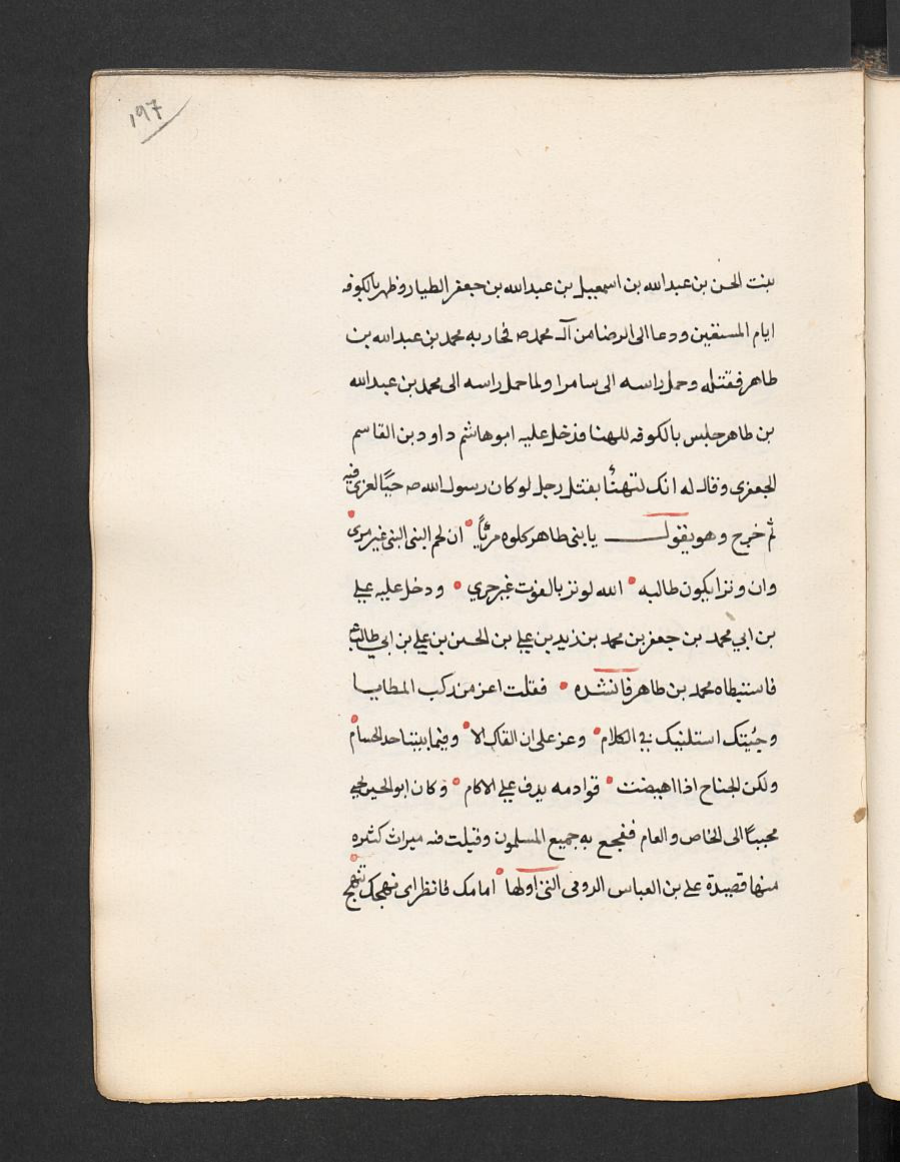 ١٩٧
بنت الحسن بن عبدالله بن اسمعيل بن عبدالله بن جعفر الطيار وظهر بالكوفه
ايام المستعين ودعا الى الرضا من آل محمد صه فحاربه محمد بن عبدالله بن
طاهر فقتله وحمل راسه الى سامرا ولما حمل راسه الى محمد بن عبدالله
بن طاهر جلس بالكوفه للهنا فدخل عليه ابو هاشم داود بن القاسم
الجعفرى وقال له انك لتهنأ بقتل رجل لو كان رسول الله صه حيًا لعزى فيه
ثم خرج وهو يقول يا بنى طاهر كلوه مريًّا ان لحم النبى غير مرى
وان وترا يكون طالبه الله لوتر بالفوت غير حري ودخل عليه علي
بن ابي محمد بن جعفر بن محمد بن زيد بن علي بن الحسن بن علي بن ابي طالب ع
فاستبطاه محمد بن طاهر فانشده فقلت اعز من ركب المطايا
وجئتك استلنيك في الكلام وعز على ان القاك الا وفيما بيننا حد الحسام
ولكن الجناح اذا اهيضت قوادمه يدف علي الاكام وكان ابو الحسين يحيى
محببًا الى الخاص والعام ففجع به جميع المسلمون وقيلت فيه ميراث كثيره
منها قصيدة علي بن العباس الرومى التى اولها امامك فانظر اى نهجيك تنهج